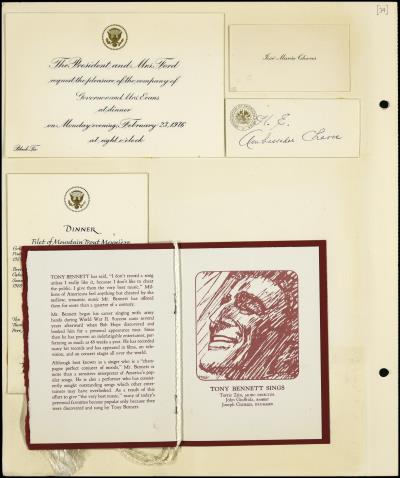 [34]
The President and Mrs. Ford
request the pleasure of the company of
Governor and Mrs. Evans
at dinner
on Monday evening, February 23, 1976
at eight o'clock
Black Tie
José María Chaves
H. E.
Ambassador Chaves
DINNER
Filet of Mountain Trout
TONY BENNETT has said, "I don't record a song
unless I really like it, because I don't like to cheat
the public. I give them the very best music." Mil-
lions of Americans feel anything but cheated by the
mellow, romantic music Mr. Bennett has offered
them for more than a quarter of a century.
Mr. Bennett began his career singing with army
bands during World War II. Success came several
years afterward when Bob Hope discovered and
booked him for a personal appearance tour. Since
then he has proven an indefatigable entertainer, per-
forming as much as 48 weeks a year. He has recorded
many hit records and has appeared in films, on tele-
vision, and on concert stages all over the world.
Although best known as a singer who is a "cham-
pagne perfect conveyor of moods," Mr. Bennett is
more than a sensitive interpreter of America's pop-
ular songs. He is also a performer who has consist-
ently sought outstanding songs which other enter-
tainers may have overlooked. As a result of this
effort to give "the very best music," many of today's
perennial favorites became popular only because they
were discovered and sung by Tony Bennett.
TONY BENNETT SINGS
Torrie Zito, MUSIC DIRECTOR
John Giuffrida, BASSIST
Joseph Cocuzzo, DRUMMER